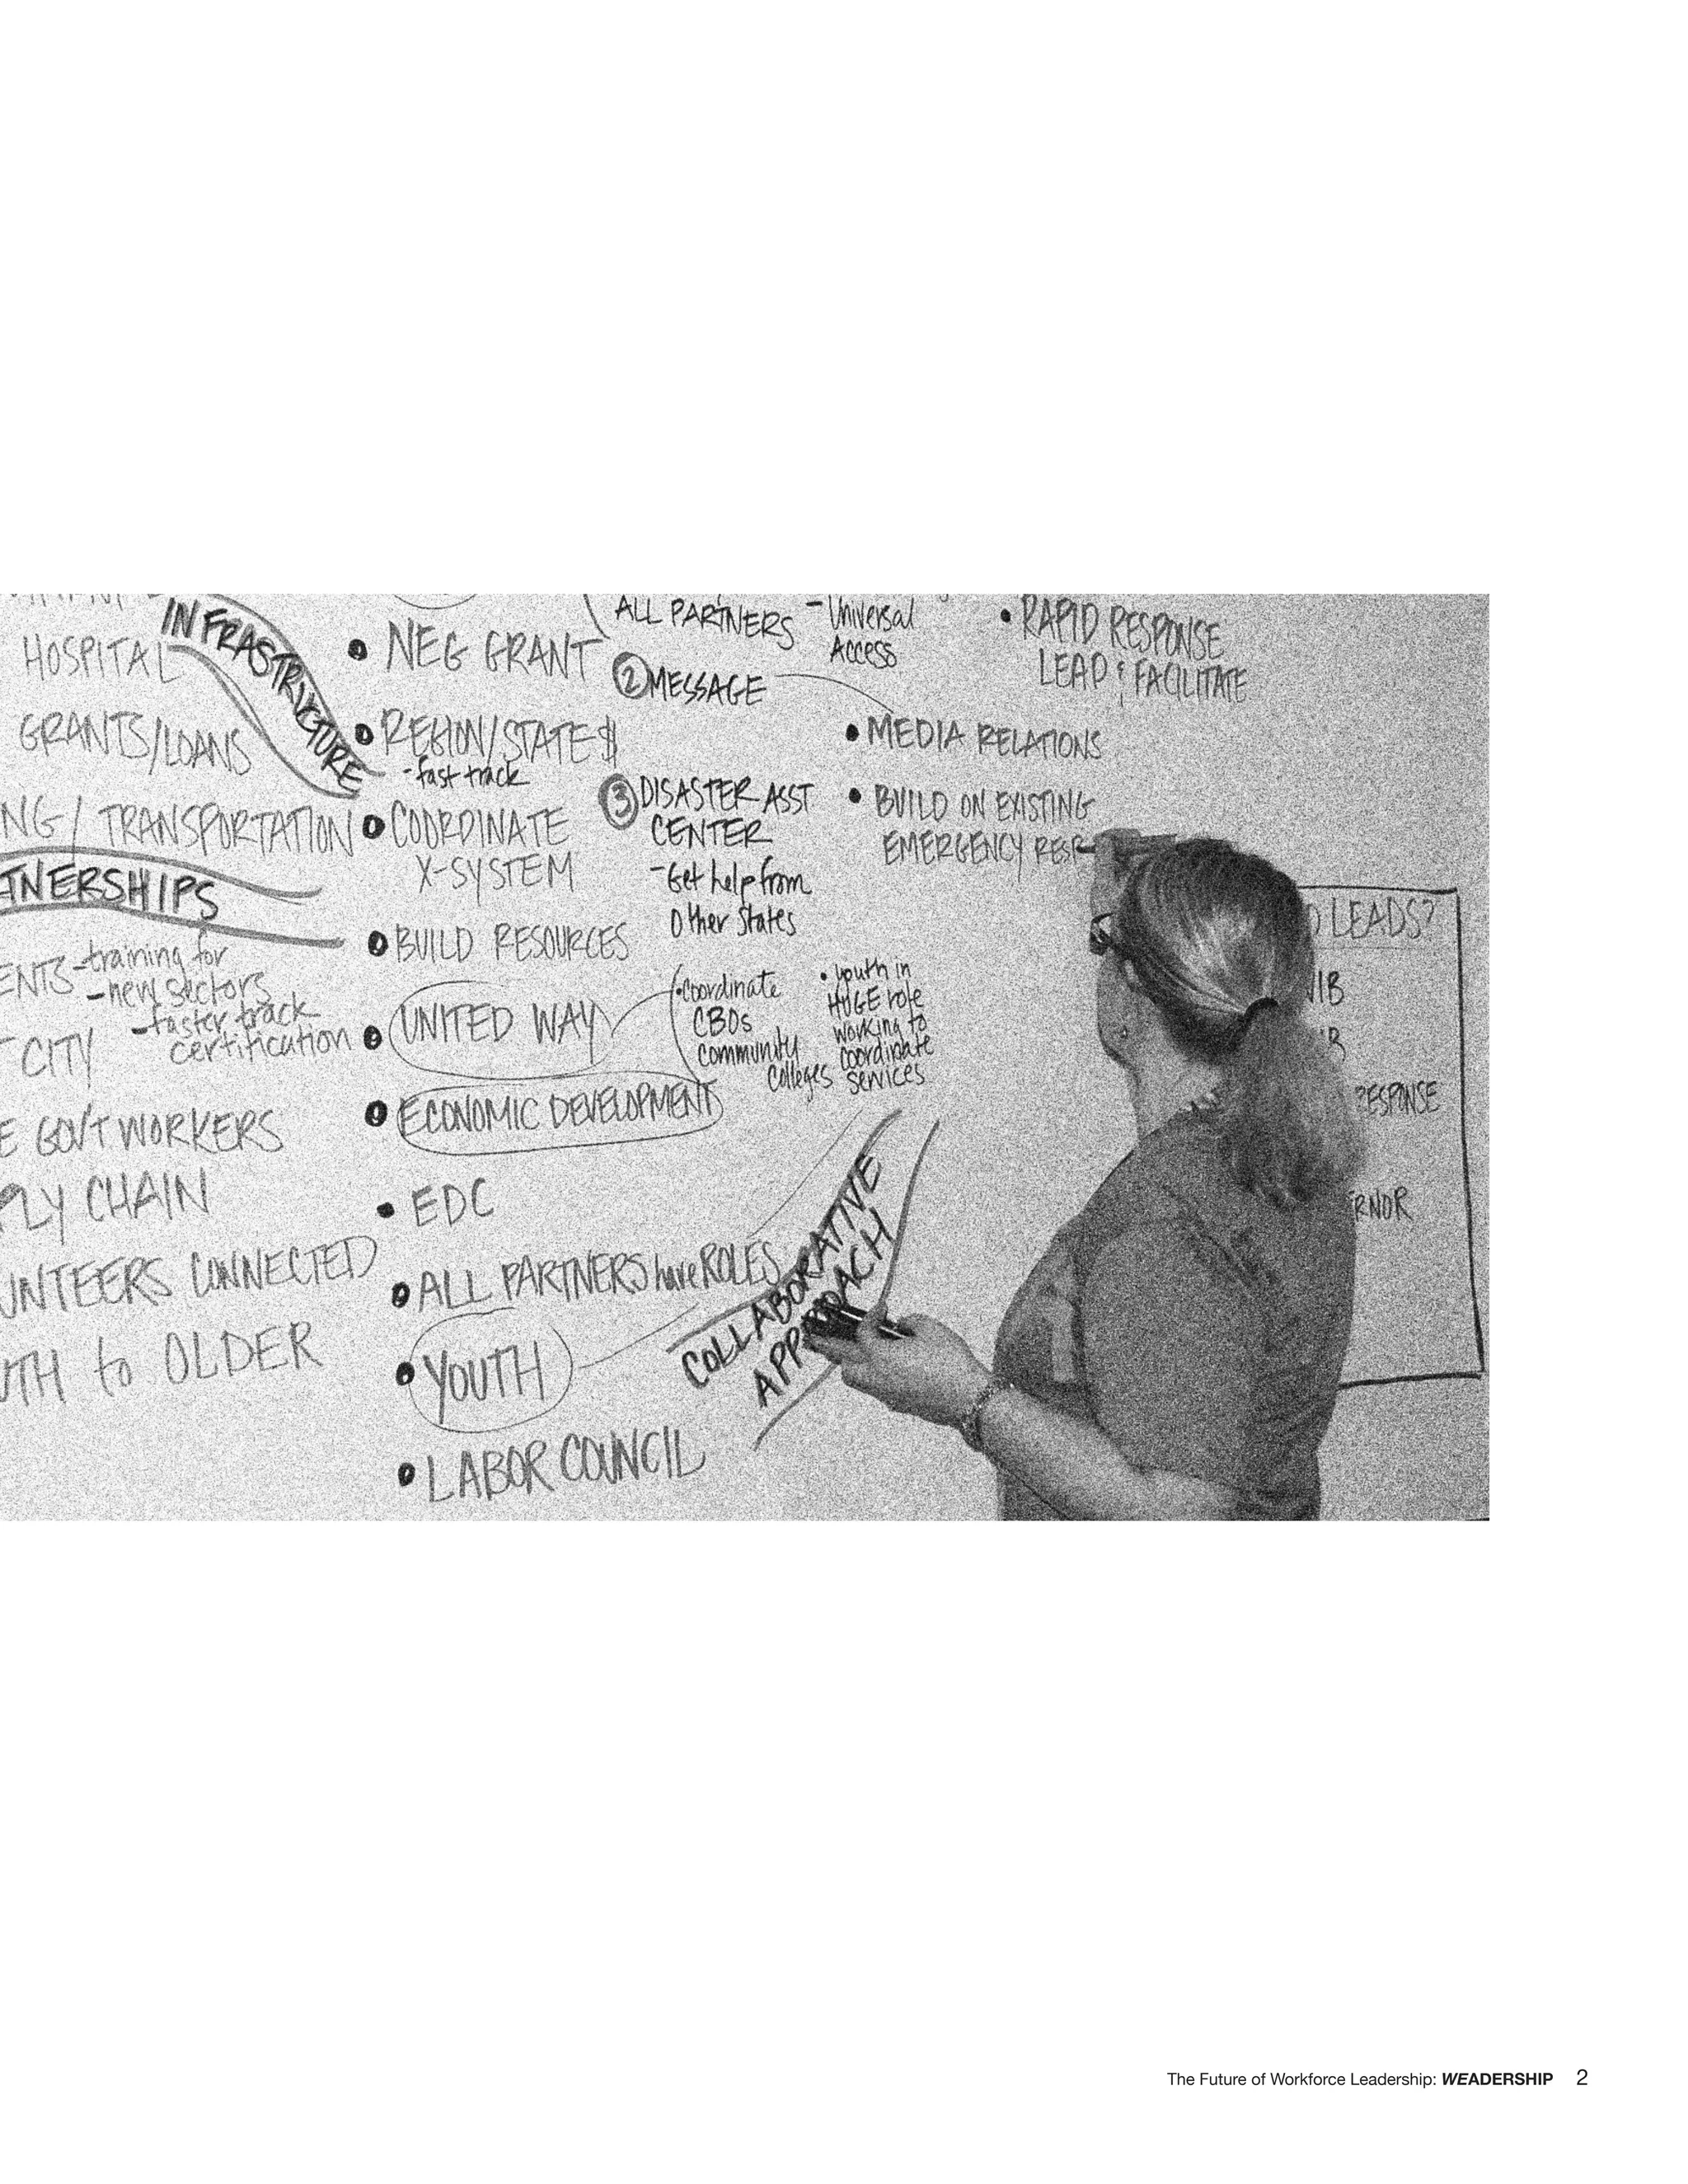 INFRASTRUCTURE
HOSPITAL
GRANTS/LOANS
TRANSPORTATION
TNERSHIPS
ENTS -training for
-new sectors
-faster track
certification
CITY
E GOVT WORKERS
PLY CHAIN
UNTEERS CONNECTED
UTH to OLDER
• NEG GRANT
• REGION/STATE $
-fast track
• COORDINATE
X-SYSTEM
• BUILD RESOURCES
• UNITED WAY
• ECONOMIC DEVELOPMENT
• EDC
• ALL PARTNERS have ROLES
• YOUTH
• LABOR COUNCIL
ALL PARTNERS
② MESSAGE
③ DISASTER ASST
CENTER
-Get help from
Other States
• coordinate
CBOs
community
colleges
- Universal
Access
• MEDIA RELATIONS
• BUILD ON EXISTING
EMERGENCY RESP
• youth in
HUGE role
working to
coordinate
services
COLLABORATIVE
APPROACH
• RAPID RESPONSE
LEAD & FACILITATE
LEADS?
IB
RESPONSE
ERNOR
The Future of Workforce Leadership: WEADERSHIP 2